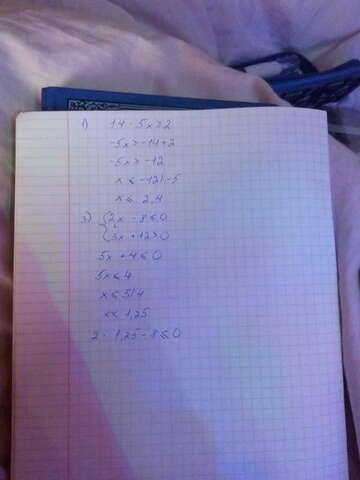 1) 14 - 5x > 2
-5x > -14 + 2
-5x > -12
x ≤ -12 : -5
x ≤ 2,4
2) { 2x - 8 ≤ 0
{ 3x + 12 > 0
5x + 4 ≤ 0
5x ≤ 4
x ≤ 5/4
x ≤ 1,25
2 · 1,25 - 8 ≤ 0